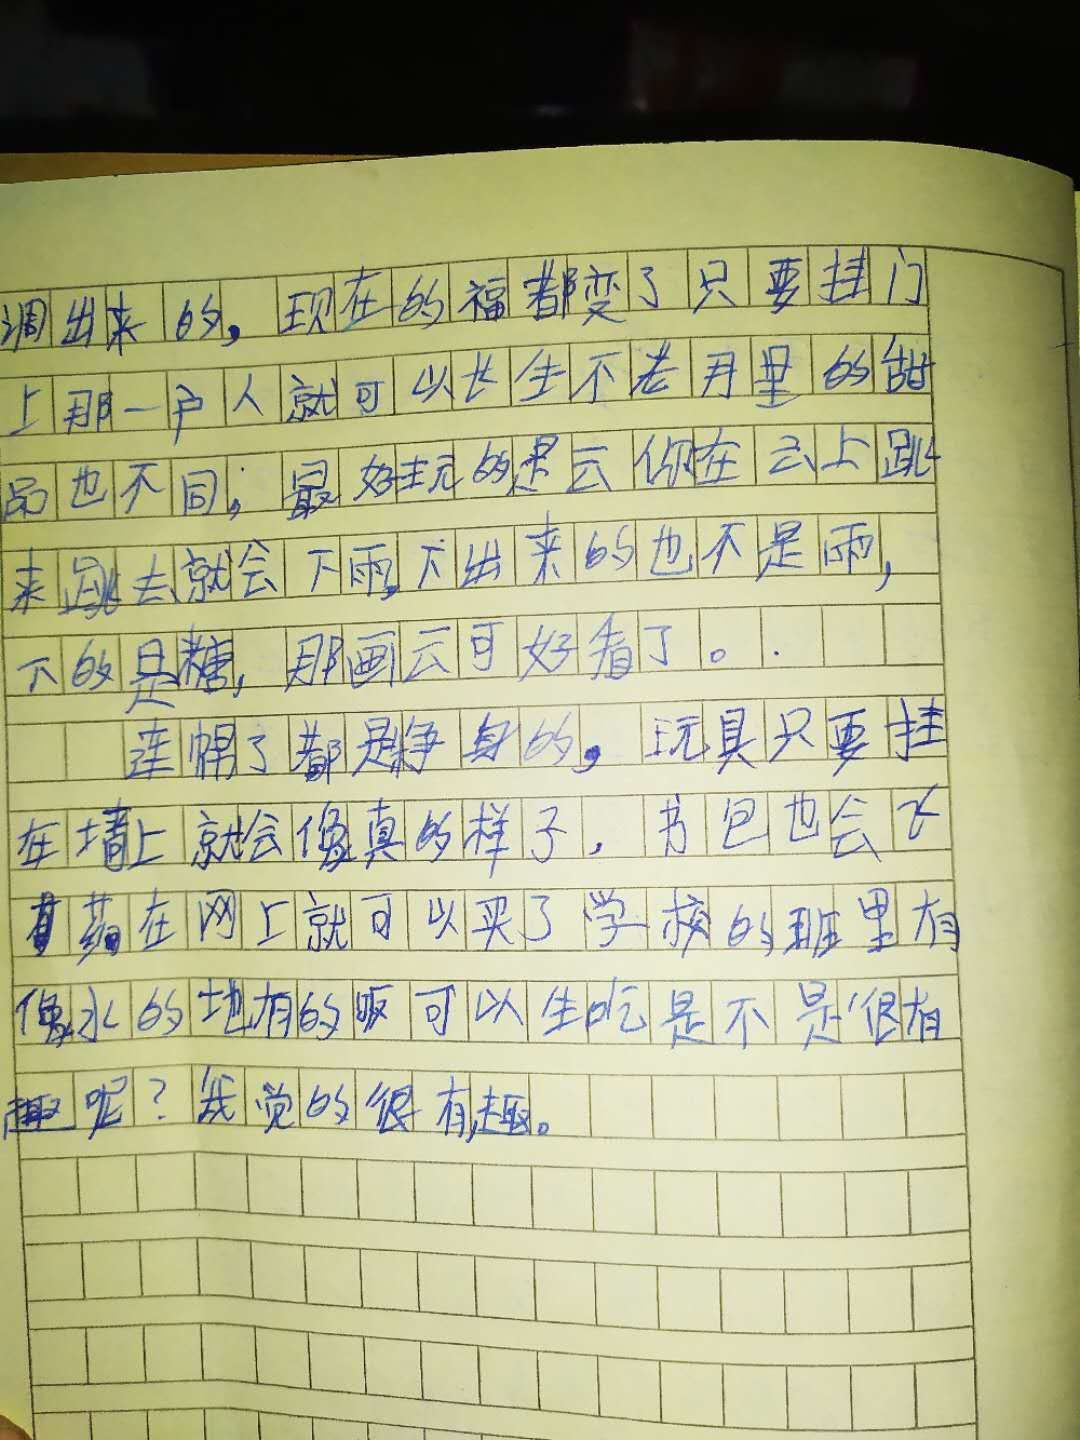 调出来的,现在的福都变了只要挂门
上那一户人就可以长生不老月里的甜
品也不同,最好玩的是云你在云上跳
来跳去就会下雨,下出来的也不是雨,
下的是糖,那画云可好看了。
连帽了都是净身的,玩具只要挂
在墙上就会像真的样子,书包也会飞
药在网上就可以买了学校的班里有
像冰的地有的饭可以生吃是不是很有
趣呢?我觉的很有趣。